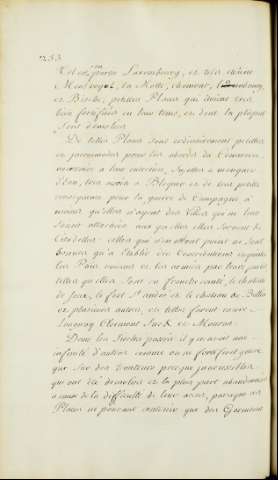 253.
Luxembourg, et telles étoient
la Motte, Clermont,
et Bitche, petites Places qui étoient très
bien fortifiées en leur tems, et dont la plupart
sont démolies.
De telles Places sont ordinairement petites
et incommodes pour les abords du Commerce,
à leur entretien, Sujettes à manquer
d'Eau, très aisées à Bloquer et de tres petite
consequence pour la guerre de Campagne à
moins qu'elles n'ayent des Villes qui en leur
soient attachées aux quelles elles servent de
Citadelles: celles qui n'en ont point ne sont
bonnes qu'à Etablir des Contributions
les Païs voisins et les
telles qu'elles sont en franche comté, le chateau
de Joux, le fort St. andré et le chateau de
et plusieurs autres, et telles furent encore
Longwy Clermont Jametz et Mouson.
Dans les Siecles passés il y en avoit une
infinité d'autres comme on ne fortifioit guere
que sur des hauteurs presque inaccessibles
qui ont été démolies et la plus part abandonnées
à cause de la difficulté de leur accès, parceque ces
Places ne pouvant contenir que des Garnisons